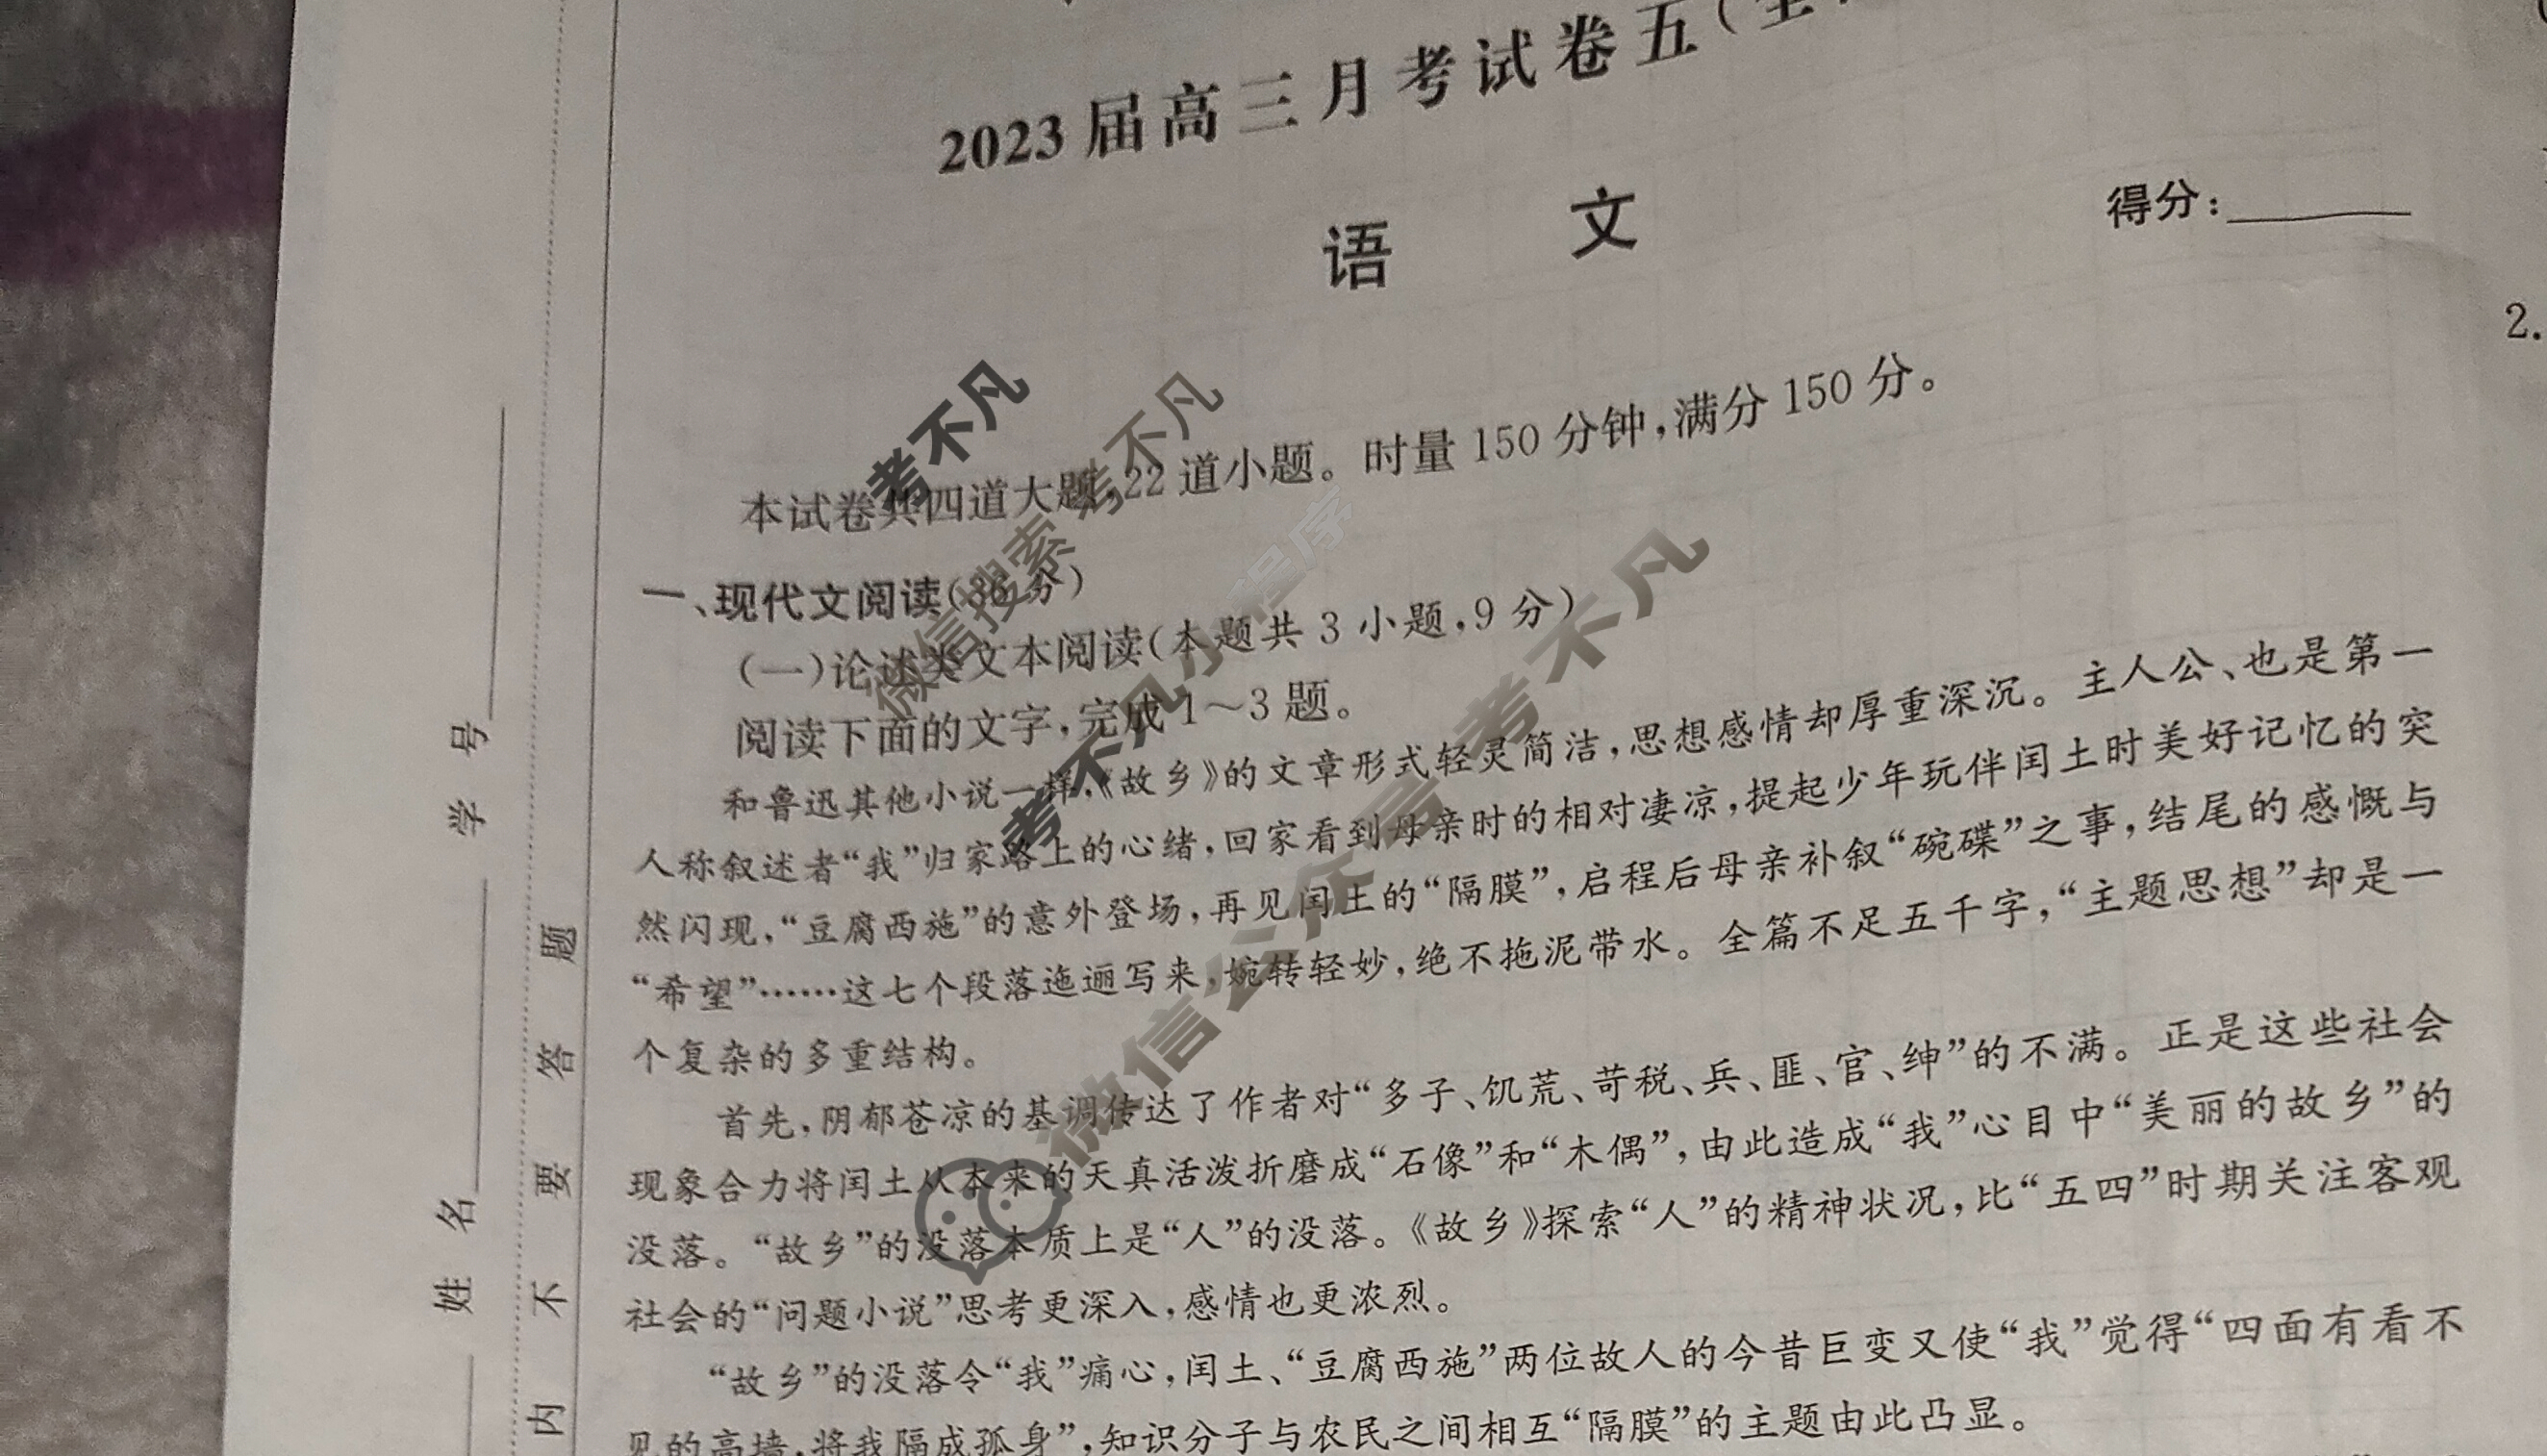 2023届高三月考试卷五(全
语 文
得分:
2.
本试卷共四道大题,22道小题。时量150分钟,满分150分。
一、现代文阅读(36分)
(一)论述类文本阅读(本题共3小题,9分)
阅读下面的文字,完成1~3题。
和鲁迅其他小说一样,《故乡》的文章形式轻灵简洁,思想感情却厚重深沉。主人公、也是第一
人称叙述者“我”归家路上的心绪,回家看到母亲时的相对凄凉,提起少年玩伴闰土时美好记忆的突
然闪现,“豆腐西施”的意外登场,再见闰土的“隔膜”,启程后母亲补叙“碗碟”之事,结尾的感慨与
“希望”……这七个段落迤逦写来,婉转轻妙,绝不拖泥带水。全篇不足五千字,“主题思想”却是一
个复杂的多重结构。
首先,阴郁苍凉的基调传达了作者对“多子、饥荒、苛税、兵、匪、官、绅”的不满。正是这些社会
现象合力将闰土从本来的天真活泼折磨成“石像”和“木偶”,由此造成“我”心目中“美丽的故乡”的
没落。“故乡”的没落本质上是“人”的没落。《故乡》探索“人”的精神状况,比“五四”时期关注客观
社会的“问题小说”思考更深入,感情也更浓烈。
“故乡”的没落令“我”痛心,闰土、“豆腐西施”两位故人的今昔巨变又使“我”觉得“四面有看不
见的高墙,将我隔成孤身”,知识分子与农民之间相互“隔膜”的主题由此凸显。
学 号
姓 名
内 不 要 答 题
考不凡
微信搜索 考不凡
考不凡小程序
微信公众号 考不凡